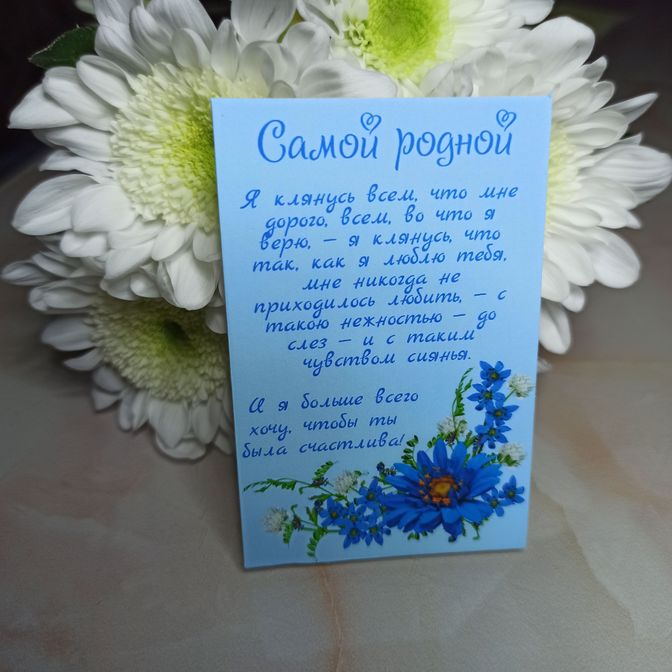 Самой родной
Я клянусь всем, что мне
дорого, всем, во что я
верю, — я клянусь, что
так, как я люблю тебя,
мне никогда не
приходилось любить, — с
такою нежностью — до
слез — и с таким
чувством сиянья.
И я больше всего
хочу, чтобы ты
была счастлива!